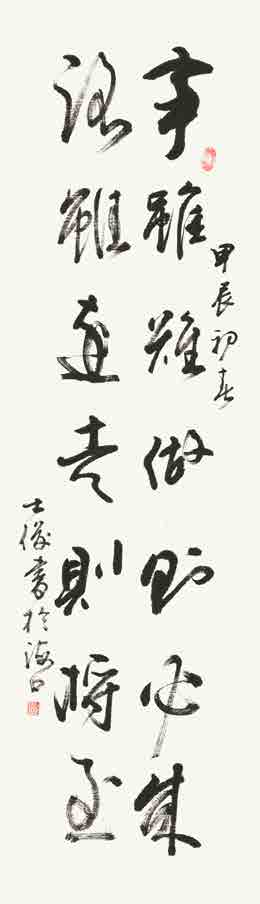 甲辰初春
事雖難做則必成
路雖遠走則將至
士俊書於海口